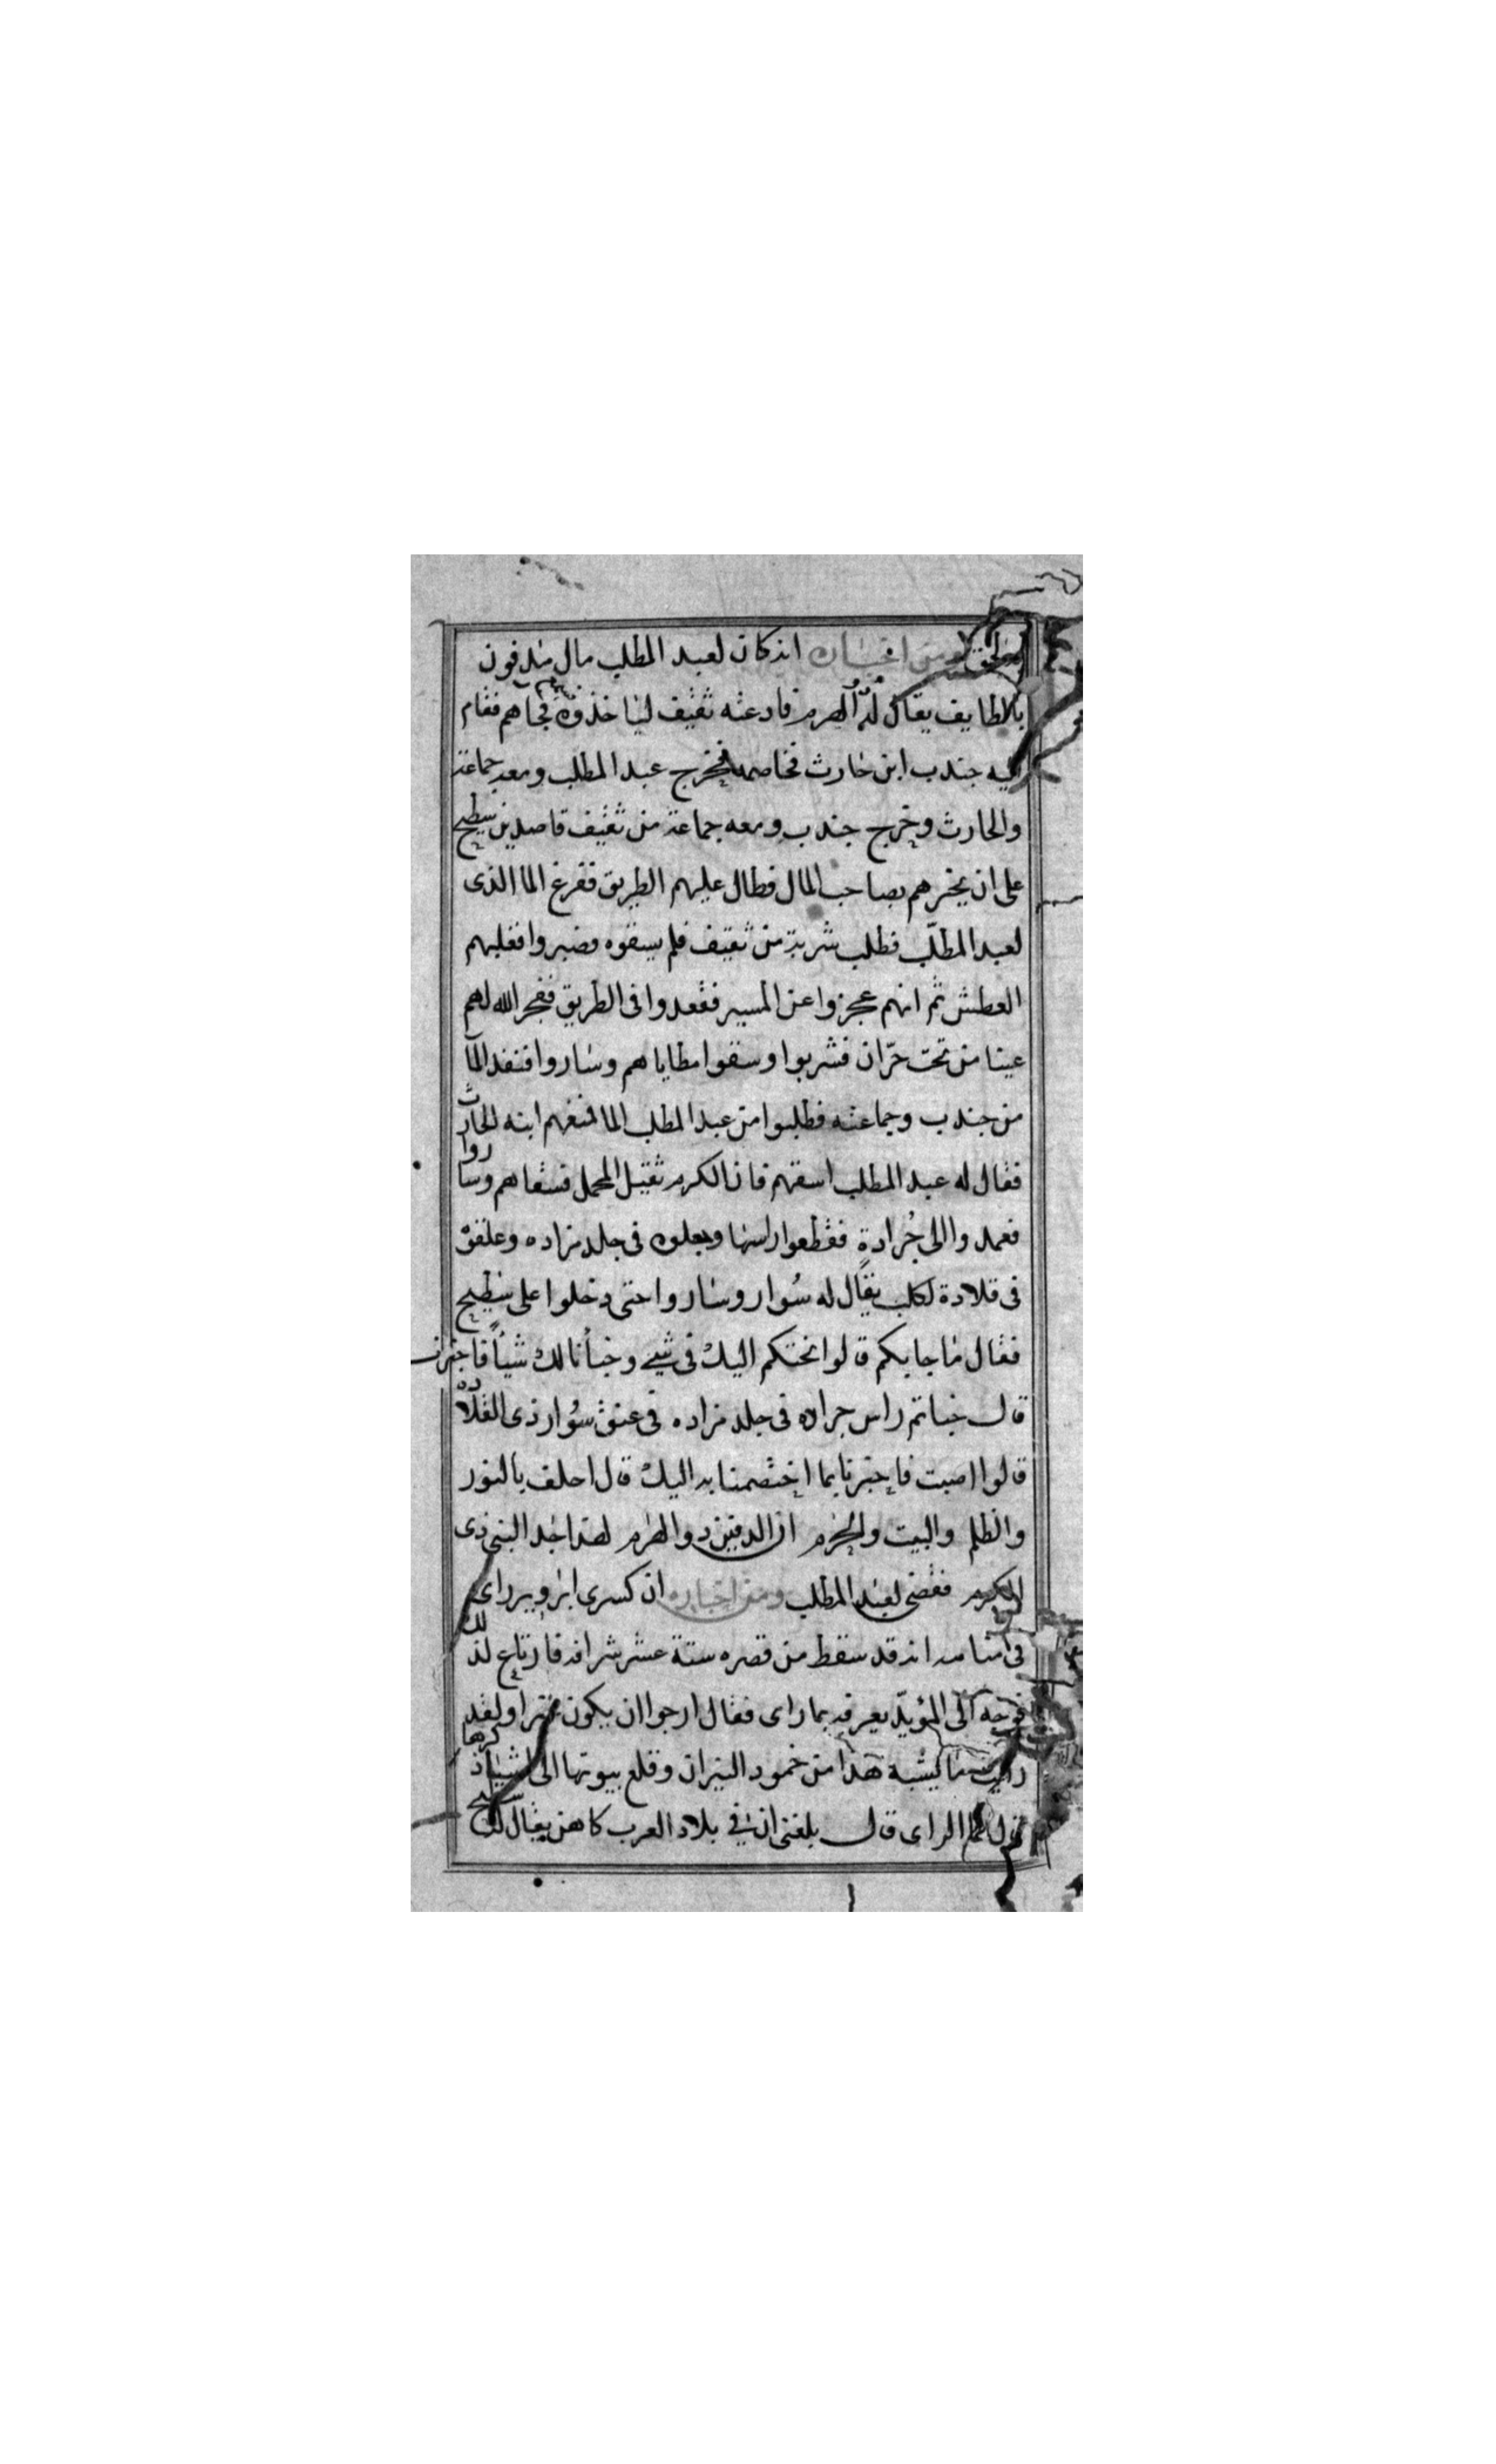 ومن اخباره انه كان لعبد المطلب مال مدفون
بالطايف يقال له الهرم فادعته ثقيف لياخذوه فجاهم فقام
اليه جندب ابن حارث فخاصمه فخرج عبد المطلب ومعه جماعة
والحارث وخرج جندب ومعه جماعة من ثقيف قاصدين سطيح
على ان يخبرهم بصاحب المال فطال عليهم الطريق ففرغ الما الذى
لعبد المطلّب فطلب شربة من ثقيف فلم يسقوه فصبروا فغلبهم
العطش ثم انهم عجزوا عن المسير فقعدوا فى الطريق ففجر الله لهم
عينا من تحت حرّان فشربوا وسقوا مطاياهم وساروا فنفد المآ
من جندب وجماعته فطلبوا من عبد المطلب الما فمنعهم ابنه الحارث
فقال له عبد المطلب اسقهم فان الكرم ثقيل المحمل فسقاهم وساروا
فعمدوا الى جُرادةٍ فقطعوا راسها وجعلوه فى جلد مزاده وعلقوه
فى قلادة لكلب يقال له سُوار وساروا حتى دخلوا على سطيح
فقال ما جا بكم قالوا نحتكم اليك فى شيء وخبأنا لك شيأً فاخبرنا
قال خباتم راس جراده فى جلد مزاده فى عنق سُوار ذى القلاده
قالوا اصبت فاخبرنا بما اختصمنا به اليك قال احلف بالنور
والظلم والبيت والحرم ان الدفين ذو الهرم لهذا جد النبى ذى
الكرم فقضى لعبد المطلب ومن اخباره ان كسرى ابرويز راى
فى منامه انه قد سقط من قصره ستة عشر شرافه فارتاع لذلك
فوجه الى المؤبدّ يعرفه بما راى فقال ارجوا ان يكون خيرا ولقد
رايت ما يشبه هذا من خمود النيران وقلع بيوتها الى اشيا ذكرها
قال فما الراى قال بلغنى ان فى بلاد العرب كاهن يقال له سطيح